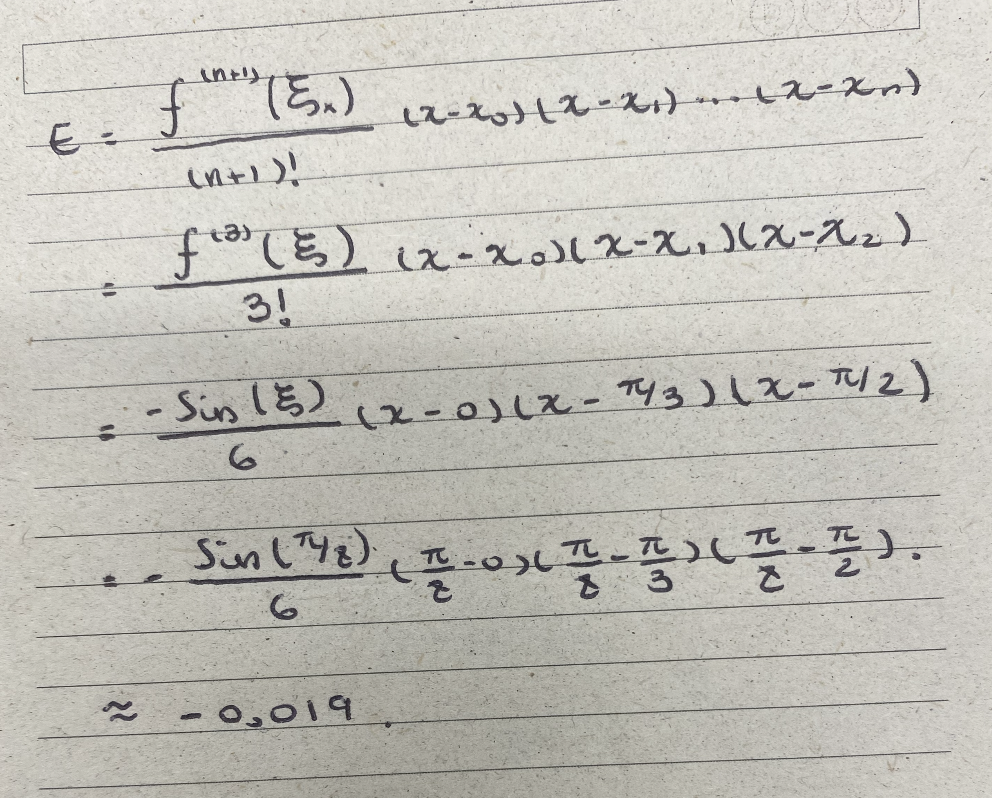 E = \frac{f^{(n+1)}(ξ_x)}{(n+1)!} (x-x_0)(x-x_1) ... (x-x_n)
= \frac{f^{(3)}(ξ)}{3!} (x-x_0)(x-x_1)(x-x_2)
= \frac{-Sin(ξ)}{6} (x-0)(x-π/3)(x-π/2)
= - \frac{Sin(π/8)}{6} (\frac{π}{8}-0)(\frac{π}{8}-\frac{π}{3})(\frac{π}{8}-\frac{π}{2}).
≈ -0,019.